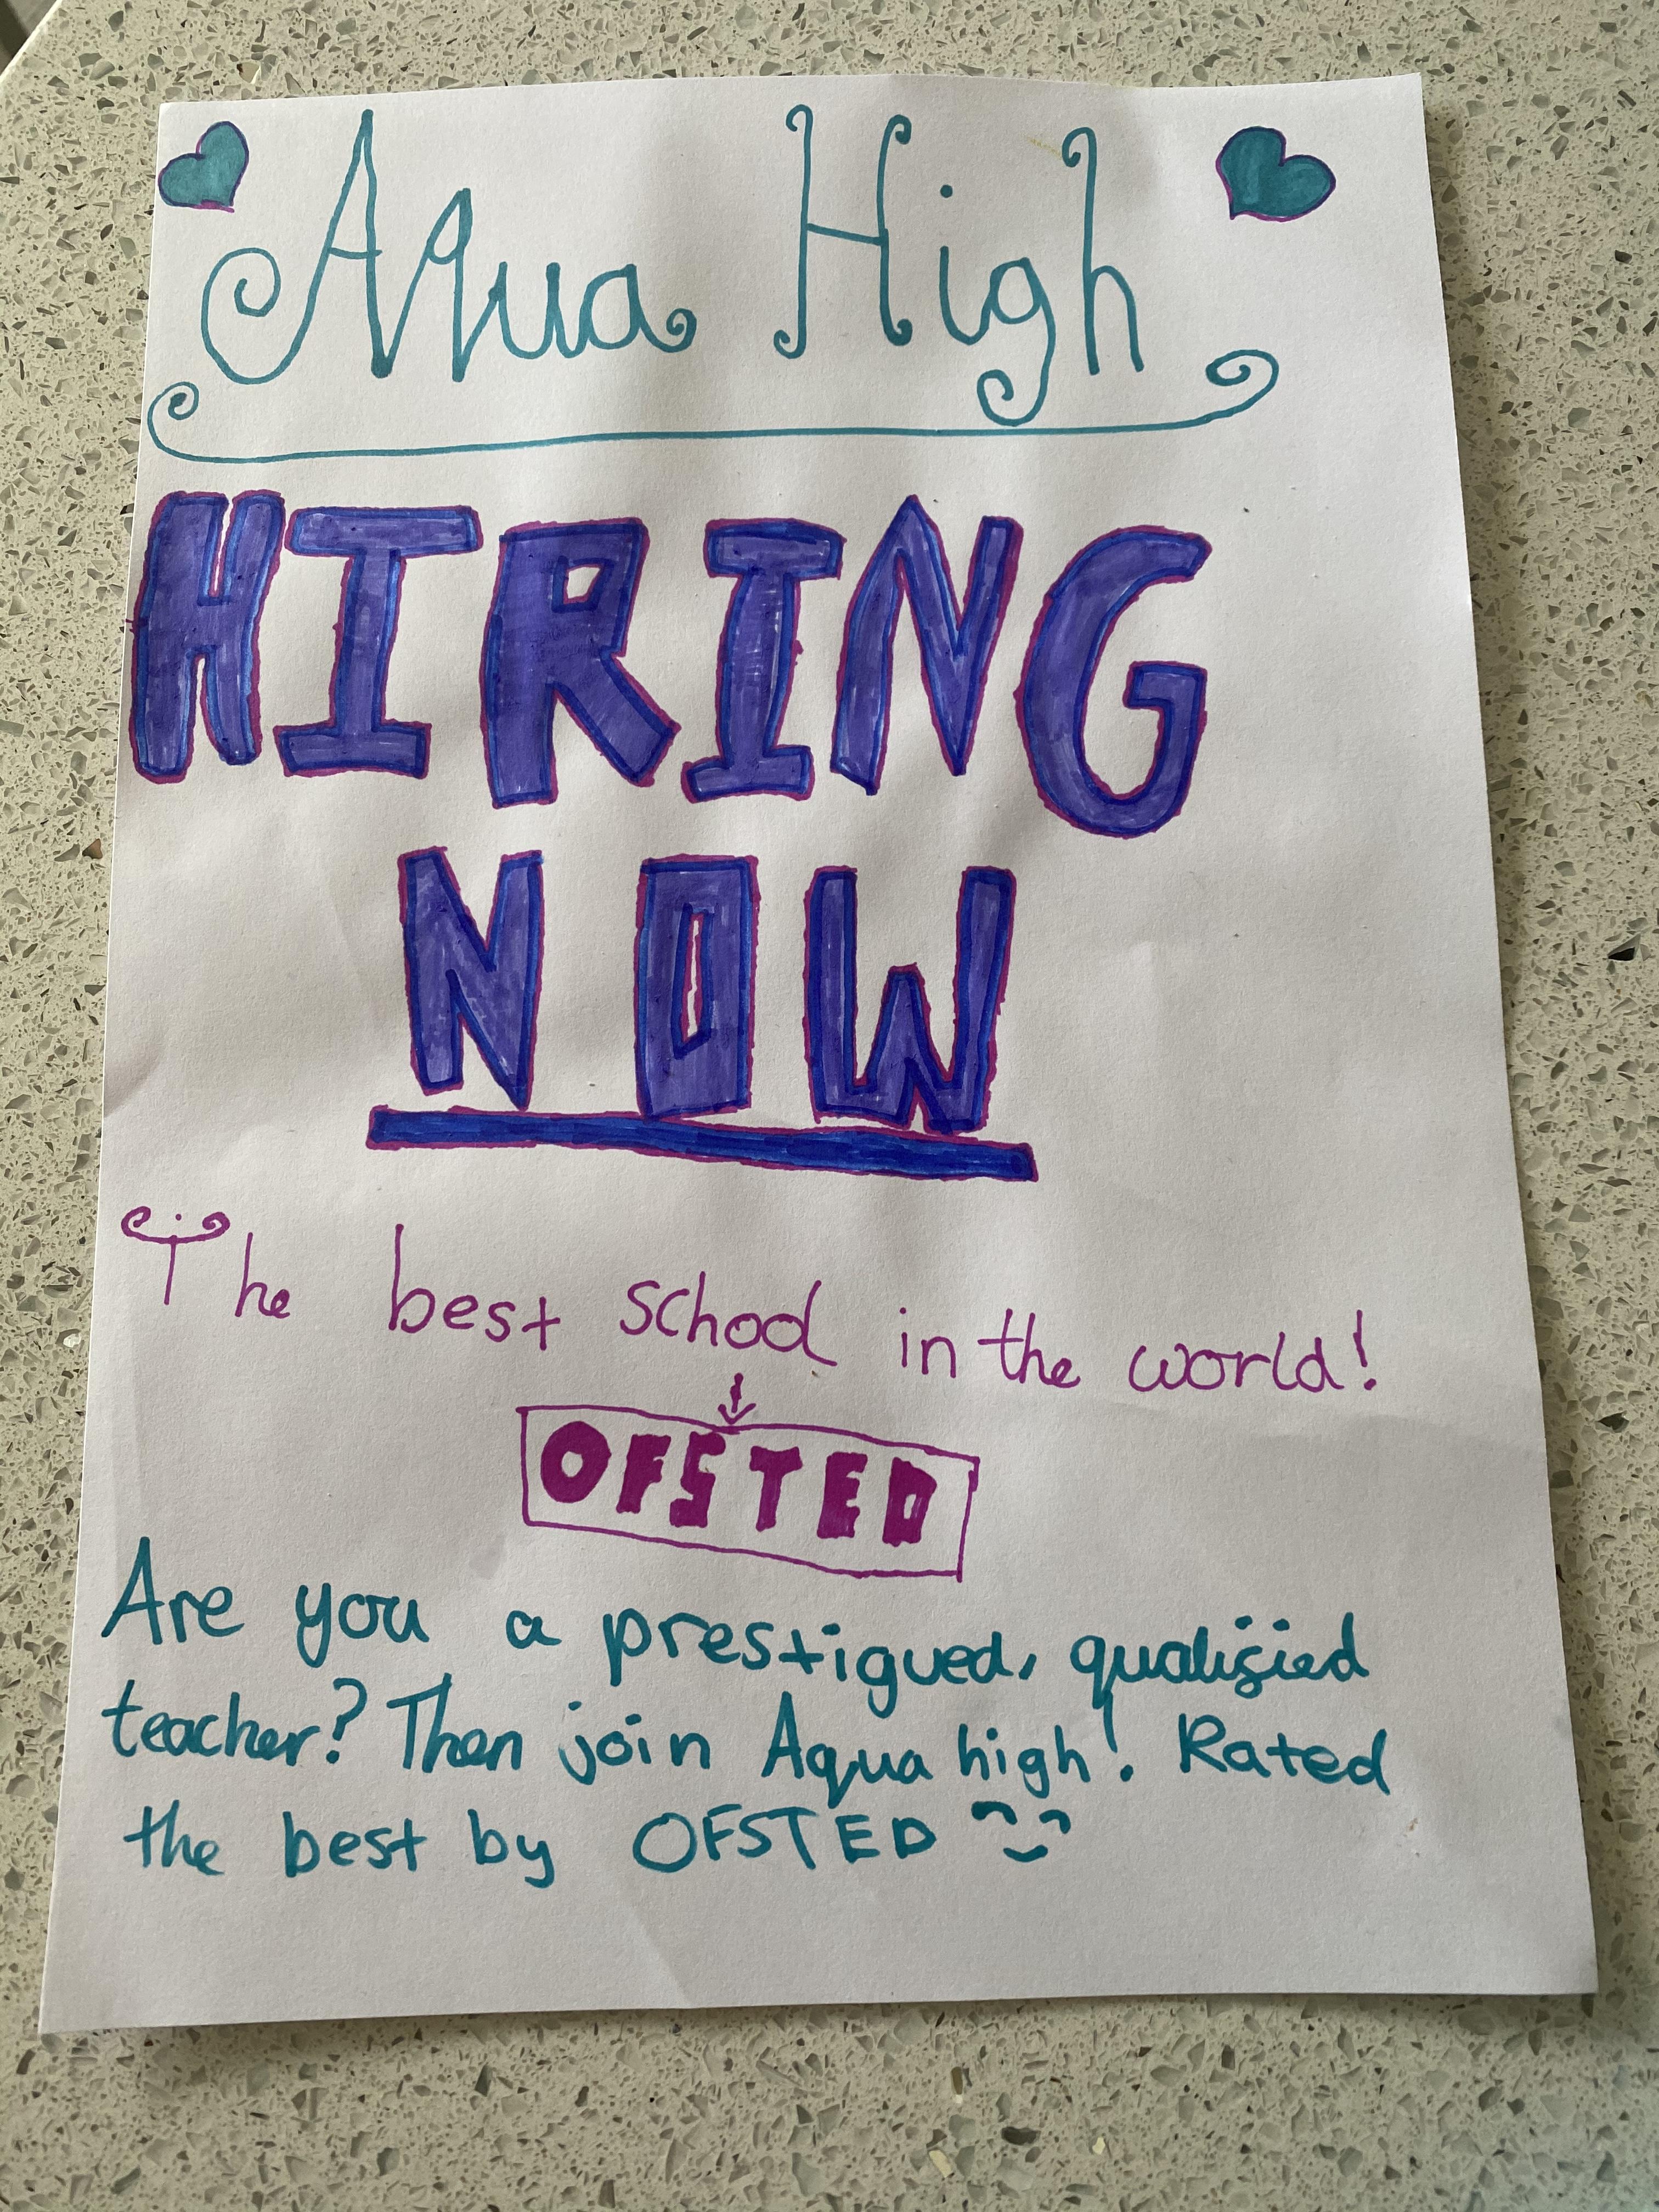 Aqua High
HIRING
NOW
The best school in the world!
OFSTED
Are you a prestigued, qualified
teacher? Then join Aqua high! Rated
the best by OFSTED